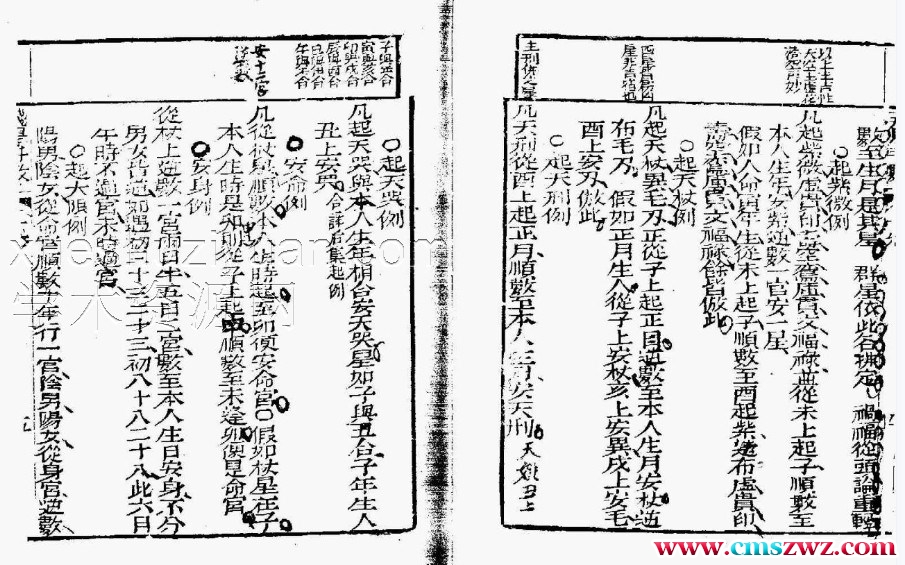 數至生月是其星 群星依此各排定 禍福從頭論重輕
起紫微例
凡起紫微虛貴印壽空鸞庫貫文福祿並從未上起子順數至
本人生年安紫逆數一宮安一星
假如人酉年生從未上起子順數至酉起紫逆布虛貴印
壽空鸞庫貫文福祿餘皆倣此
○起天杖例
凡起天杖異毛刃正從子上起正月逆數至本人生月安杖逆
布毛刃 假如正月生人從子上安杖亥上安異戌上安毛
酉上安刃倣此
○起天刑例
凡天刑從酉上起正月順數至本人生月安天刑
主刑
子與丑合
寅與亥合
卯與戌合
辰與酉合
巳與申合
午與未合
○起天哭例
凡起天哭與本人生年相合安天哭星如子與丑合子年生人
丑上安哭 合詳后集起例
○安命例
安十二宮
凡從杖星順數本人生時起至卯便安命宮○假如杖星在子
本人生時是如則從子上起 順數至未逢卯便是命宮
○安身例
從杖上逆數一宮兩日半五日二宮數至本人生日安身不分
男女皆逆如遇初三十三二十三初八十八二十八此六日
午時不過宮未時過宮
○起大限例
陽男陰女從命宮順數十年行一宮陰男陽女從身宮逆數
學术资源网
www.cmszwz.com